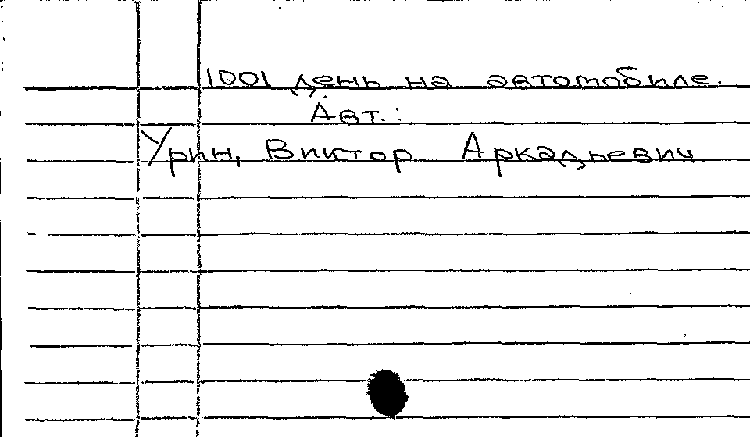 1001 день на автомобиле.
Авт.:
Урин, Виктор Аркадьевич